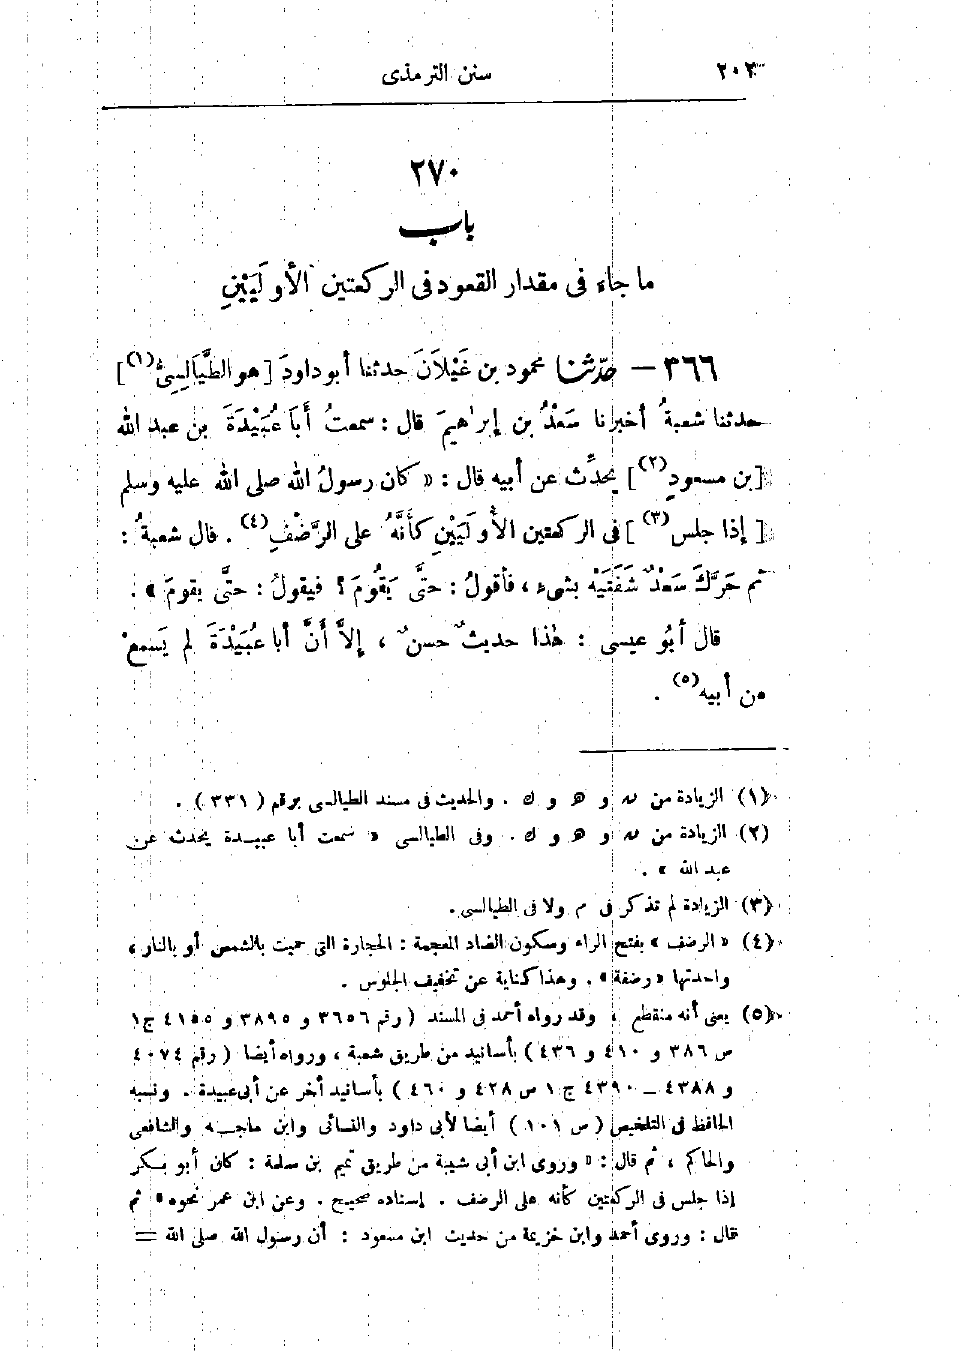 ٢٠٢
سنن الترمذى
٢٧٠
باب
ما جاء فى مقدار القعود فى الركعتين الأولَيَيْنِ
٣٦٦ — حدّثنا محمود بن غَيْلَانَ حدثنا أبو داودَ [هو الطَّيَالِسِىُّ(١)]
حدثنا شعبةُ أخبرنا سَعْدُ بن إبراهيمَ قال : سمعتُ أَبَا عُبَيْدَةَ بن عبد الله
[بن مسعودٍ(٢)] يحدِّث عن أبيه قال : « كان رسولُ الله صلى الله عليه وسلم
[ إذا جلس(٣)] فى الركعتين الأُولَيَيْنِ كأَنَّهُ على الرَّضْفِ(٤) . قال شعبةُ :
ثم حَرَّكَ سَعْدٌ شَفَتَيْهِ بشىء ، فأقولُ : حتَّى يَقُومَ ؟ فيقولُ : حتَّى يقومَ » .
قال أبُو عيسى : هٰذا حديثٌ حسنٌ ، إلاَّ أَنَّ أبا عُبَيْدَةَ لم يَسمعْ
من أبيه(٥) .
(١) الزيادة من و هـ و ك . والحديث فى مسند الطيالسى برقم ( ٣٣١ ) .
(٢) الزيادة من و هـ و ك . وفى الطيالسى « سمعت أبا عبيدة يحدث عن
عبد الله » .
(٣) الزيادة لم تذكر فى م ولا فى الطيالسى .
(٤) « الرضف » بفتح الراء وسكون الضاد المعجمة : الحجارة التى حميت بالشمس أو بالنار ،
واحدتها « رضفة » . وهذا كناية عن تخفيف الجلوس .
(٥) يعنى أنه منقطع ، وقد رواه أحمد فى المسند ( رقم ٣٦٥٦ و ٣٨٩٥ و ٤١٥٥ ج١
ص ٣٨٦ و ٤١٠ و ٤٣٦ ) بأسانيد من طريق شعبة ، ورواه أيضا ( رقم ٤٠٧٤
و ٤٣٨٨ ــ ٤٣٩٠ ج ١ ص ٤٢٨ و ٤٦٠ ) بأسانيد أخر عن أبى عبيدة . ونسبه
الحافظ فى التلخيص ( ص ١٠١ ) أيضا لأبى داود والنسائى وابن ماجـه والشافعى
والحاكم ، ثم قال : « وروى ابن أبى شيبة من طريق تميم بن سلمة : كان أبو بكر
إذا جلس فى الركعتين كأنه على الرضف . إسناده صحيح . وعن ابن عمر نحوه » ثم
قال : وروى أحمد وابن خزيمة من حديث ابن مسعود : أن رسول الله صلى الله =